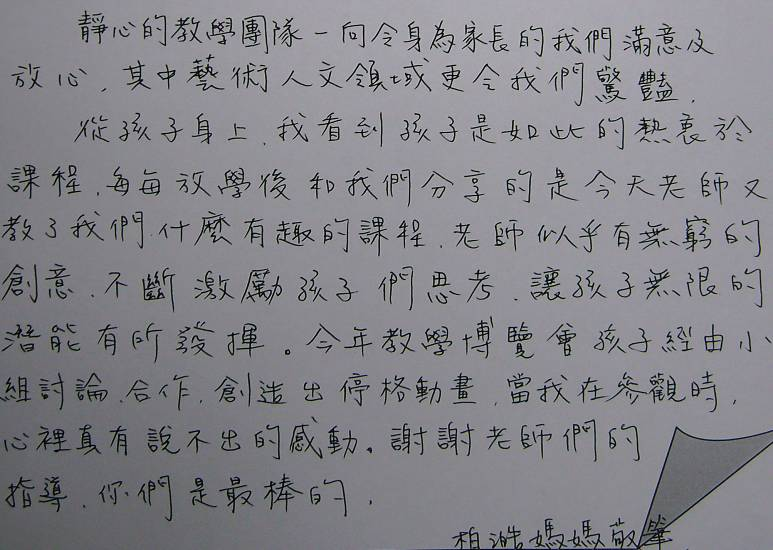 靜心的教學團隊一向令身為家長的我們滿意及
放心，其中藝術人文領域更令我們驚豔，
從孩子身上，我看到孩子是如此的熱衷於
課程，每每放學後和我們分享的是今天老師又
教了我們什麼有趣的課程，老師似乎有無窮的
創意，不斷激勵孩子們思考，讓孩子無限的
潛能有所發揮。今年教學博覽會孩子經由小
組討論，合作，創造出停格動畫，當我在參觀時，
心裡真有說不出的感動。謝謝老師們的
指導，你們是最棒的，
柏澔媽媽敬筆